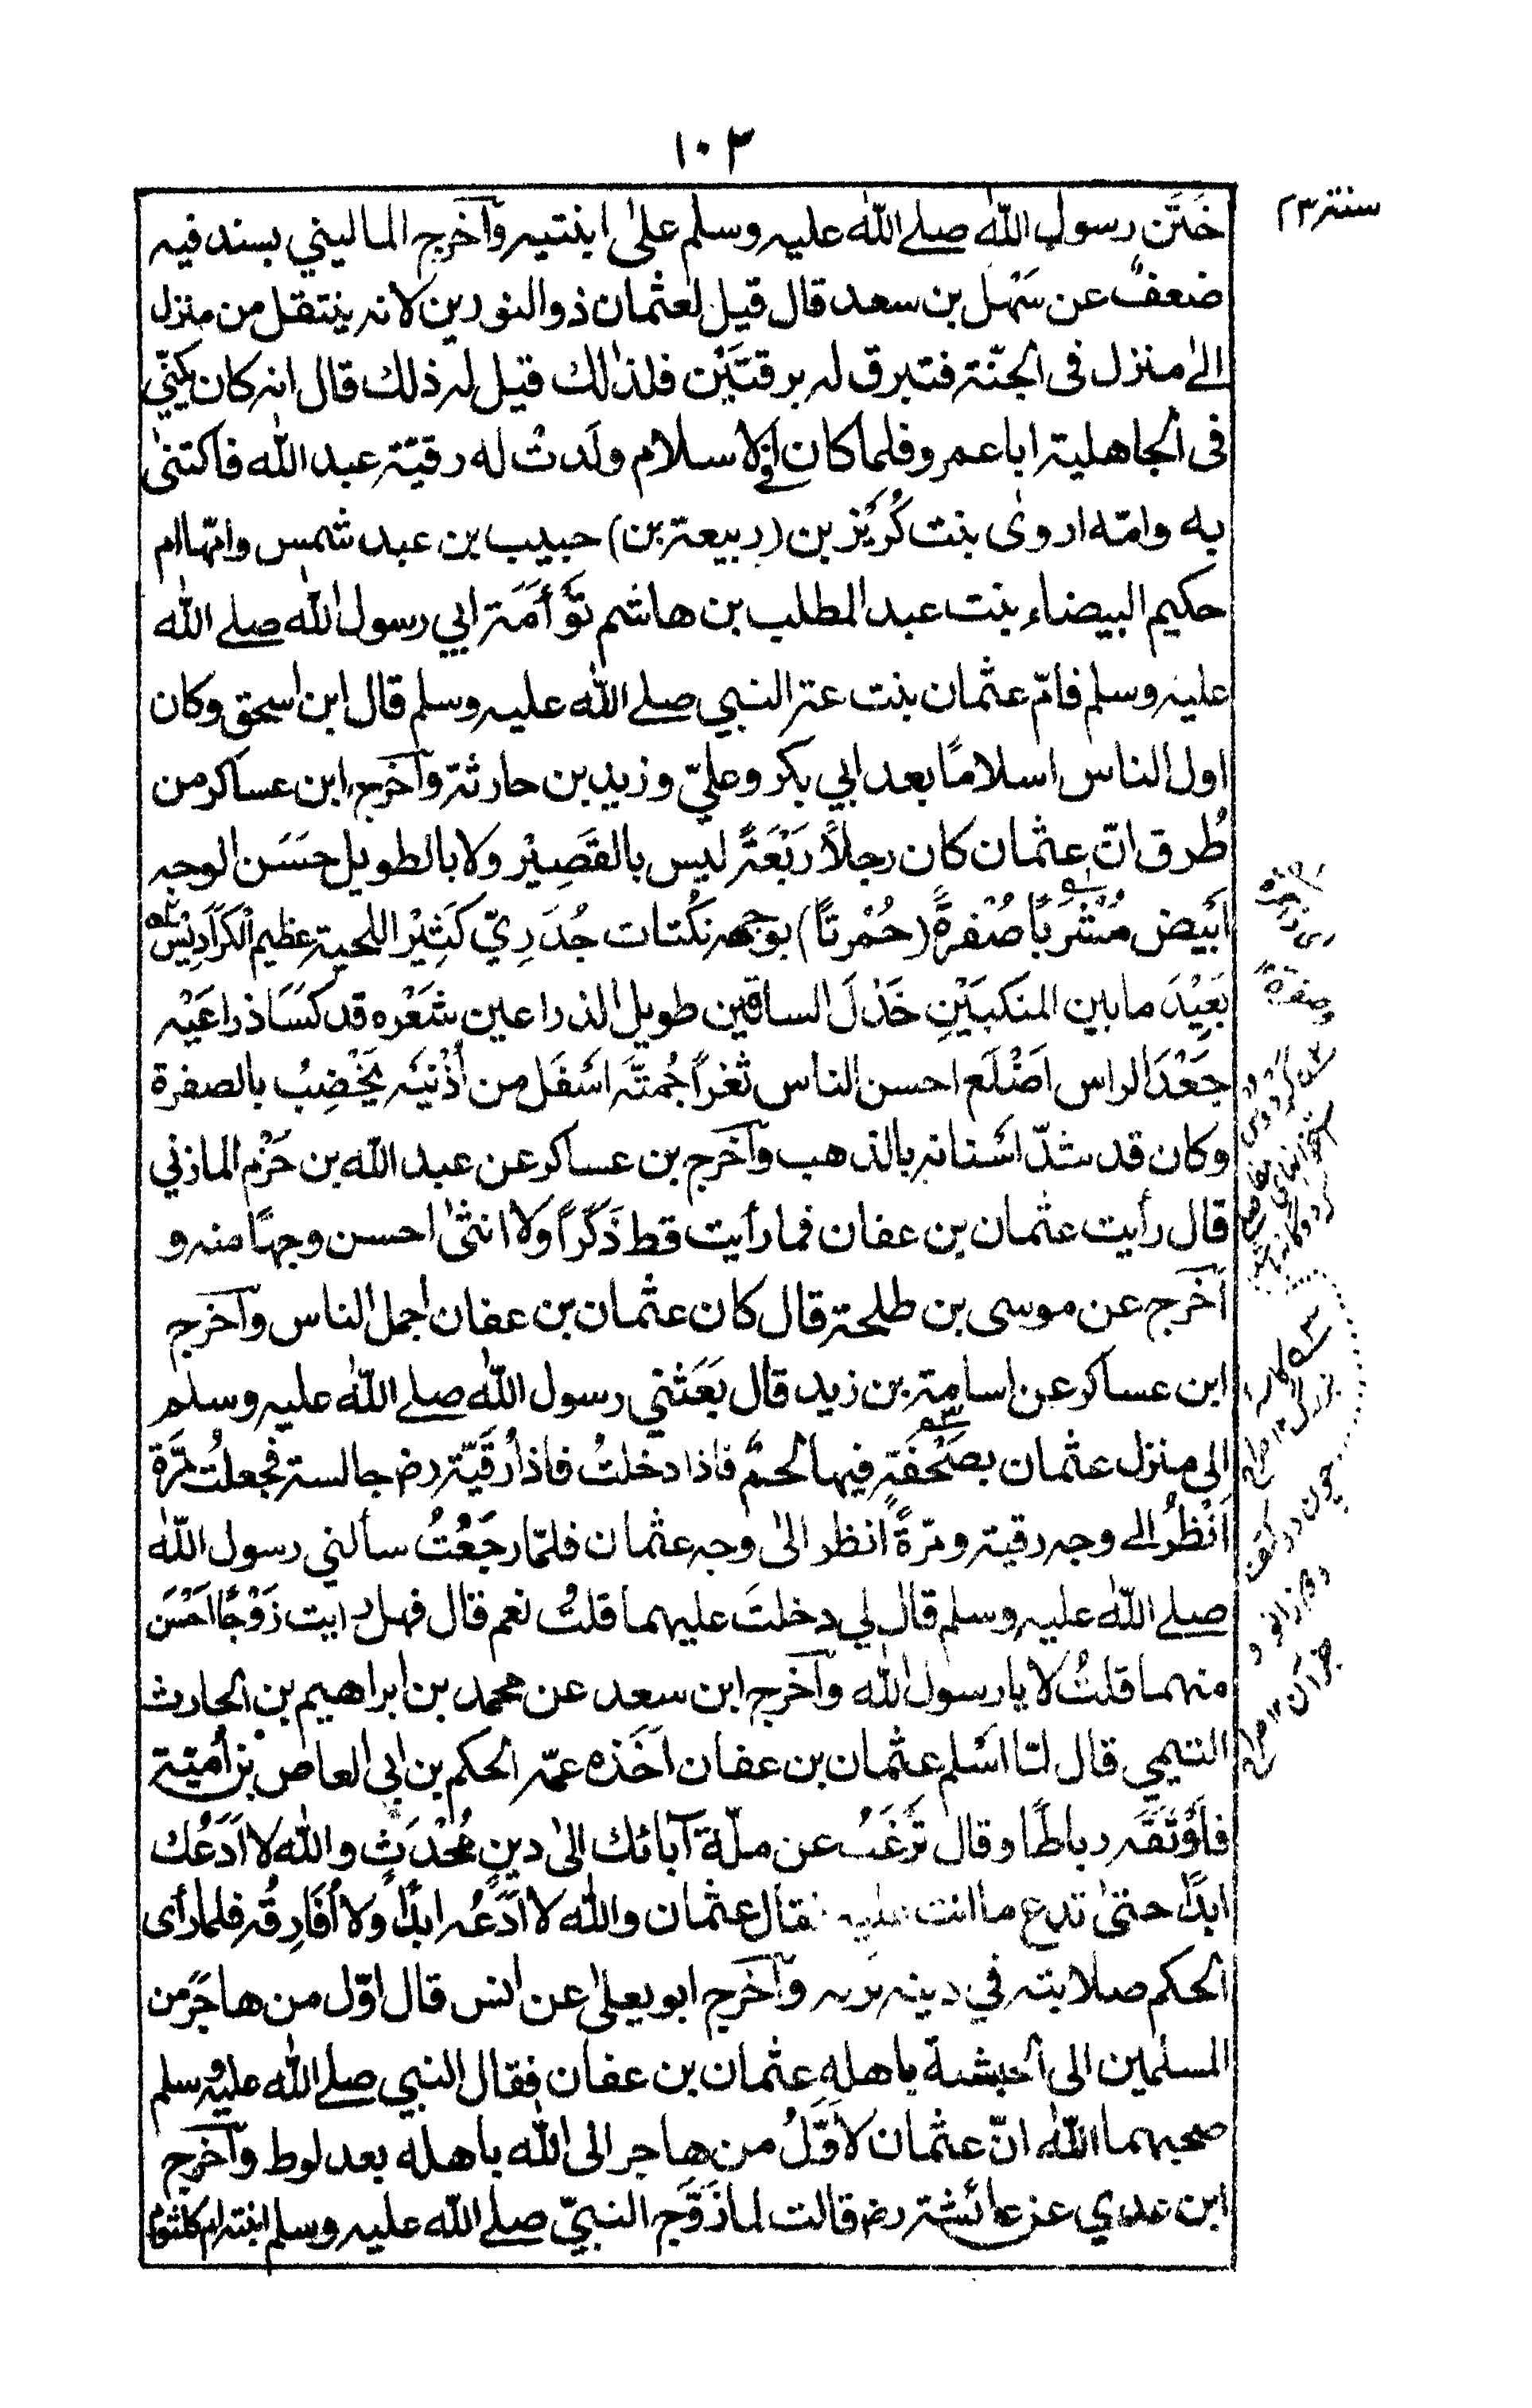 ١٠٣
سنة ٢٣
خَتَن رسول الله صلے الله عليه وسلم علىٰ ابنتيه وآخرج الماليني بسند فيه
ضعفٌ عن سَهْل بن سعد قال قيل لعثمان ذو النورين لانه ينتقل من منزل
الىٰ منزل فى الجنّة فتبرق له برقتَيْن فلذالك قيل له ذلك قال انه كان يكنّي
فى الجاهلية ابا عمرو فلما كان فى الاسلام ولدتْ له رقيّة عبد الله فاكتنىٰ
به وامّه اروىٰ بنت كُرَيْز بن (ربيعة بن) حبيب بن عبد شمس وامّها ام
حكيم البيضاء بنت عبد المطلب بن هاشم تَوْأَمَة ابي رسول الله صلے الله
عليه وسلم فامّ عثمان بنت عمة النبي صلے الله عليه وسلم قال ابن اسحق وكان
اول الناس اسلامًا بعد ابي بكر وعليّ وزيد بن حارثة وآخرج ابن عساكر من
طُرق انّ عثمان كان رجلاً رَبْعَةً ليس بالقَصِيْر ولا بالطويل حَسَن الوجه
اَبْيض مُشْرَبًا صُفْرةً (حُمْرتًا) بوجهه نكُتات جُدَرِيّ كَثِيْر اللحية عظيم الكَرَادِيْس
بَعِيْدَ ما بين المنكبَيْنِ خَدْلَ الساقين طويل الذراعين شَعْره قد كَسَا ذراعَيْه
جَعْدَ الراس اَصْلَع احسن الناس ثغراً جُمتَّه اَسْفَل من اُذْنَيْه يَخْضِبُ بالصفرة
وكان قد شدّ اسْنانه بالذهب وآخرج بن عساكر عن عبد الله بن حَزْم المازني
قال رأيت عثمان بن عفان فما رأيت قط ذَكَراً ولا انثىٰ احسن وجهًا منه و
اَخْرج عن موسى بن طلحة قال كان عثمان بن عفان اجمل الناس وآخرج
ابن عساكر عن اسامة بن زيد قال بَعَثني رسول الله صلے الله عليه وسلم
الى منزل عثمان بصَحْفَةٍ فيها لحمٌ فاذا دخلتُ فاذا رُقَيّة رض جالسة فجعلتُ مَرّة
اَنْظرُ الے وجه رقية ومرّةً انظر الىٰ وجه عثمان فلمّا رجَعْتُ سألني رسول الله
صلے الله عليه وسلم قال لي دخلتَ عليهما قلتُ نعم قال فهل رايت زَوْجًا اَحْسَن
منهما قلتُ لا يا رسول الله وآخرج ابن سعد عن محمد بن ابراهيم بن الحارث
التيمي قال لمّا اسْلم عثمان بن عفان اَخَذه عمّه الحكم بن ابي العاص بن اُميّة
فاَوْثَقَه رباطًا وقال تَرْغَبُ عن ملّة آبائك الىٰ دينٍ مُحْدَثٍ والله لا اَدَعُك
ابدًا حتىٰ تدع ما انت عليه فقال عثمان والله لا اَدَعُه ابدًا ولا اُفَارِقُه فلما رأى
الحكم صلابته في دينه تركه وآخرج ابو يعلىٰ عن انس قال اوّل من هاجَرَ من
المسلمين الى الحبشة باهله عثمان بن عفان فقال النبي صلے الله عليه وسلم
صحبهما الله انّ عثمان لاَوّلُ من هاجر الى الله باهله بعد لوط وآخرج
ابن عدي عن عائشة رض قالت لما زَوَّج النبيّ صلے الله عليه وسلم ابنته ام كلثوم